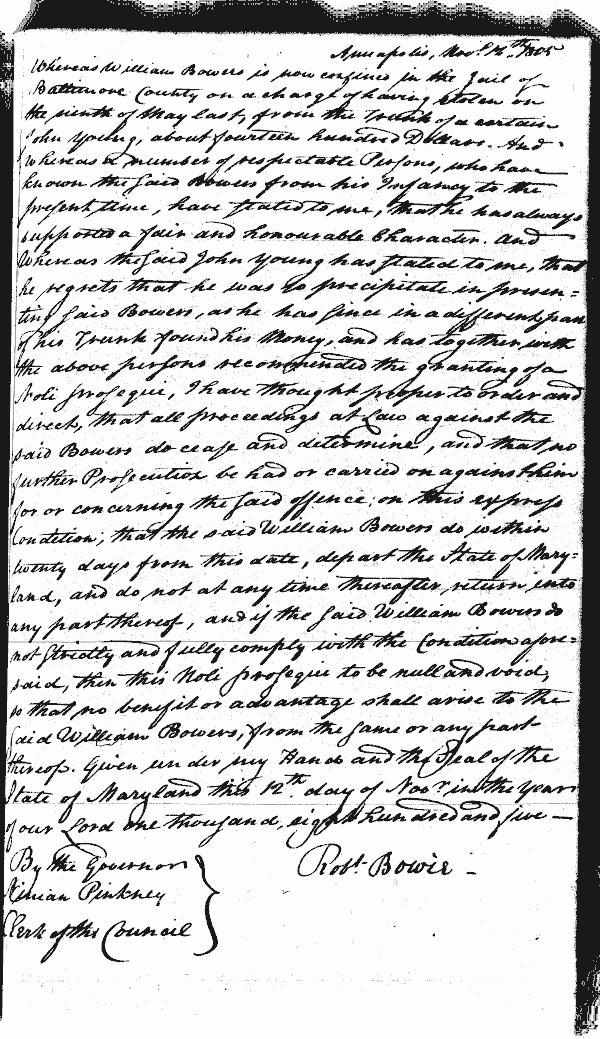 Annapolis, Novr. 12th. 1805
Whereas William Bowers is now confined in the Jail of
Baltimore County on a charge of having stolen on
the ninth of May last, from the Trunk of a certain
John Young, about fourteen hundred Dollars. And
Whereas a number of respectable Persons, who have
known the said Bowers from his Infancy to the
present time, have stated to me, that he has always
supported a fair and honourable Character. And
Whereas the said John Young has stated to me, that
he regrets that he was so precipitate in presen=
ting said Bowers, as he has since in a different part
of his Trunk found his Money, and has together with
the above persons recommended the granting of a
Noli prosequi, I have thought proper to order and
direct, that all proceedings at Law against the
said Bowers do cease and determine, and that no
further Prosecution be had or carried on against him
for or concerning the said offence; on this express
Condition, that the said William Bowers do within
twenty days from this date, depart the State of Mary=
land, and do not at any time thereafter return into
any part thereof, and if the said William Bowers do
not Strictly and fully comply with the Condition afore=
said, then this Noli prosequi to be null and void,
so that no benefit or advantage shall arise to the
said William Bowers, from the same or any part
thereof. Given under my Hand and the Seal of the
State of Maryland this 12th. day of Novr. in the year
of our Lord one thousand, eight hundred and five —
By the Governor
Robt. Bowie -
Ninian Pinkney
Clerk of the Council